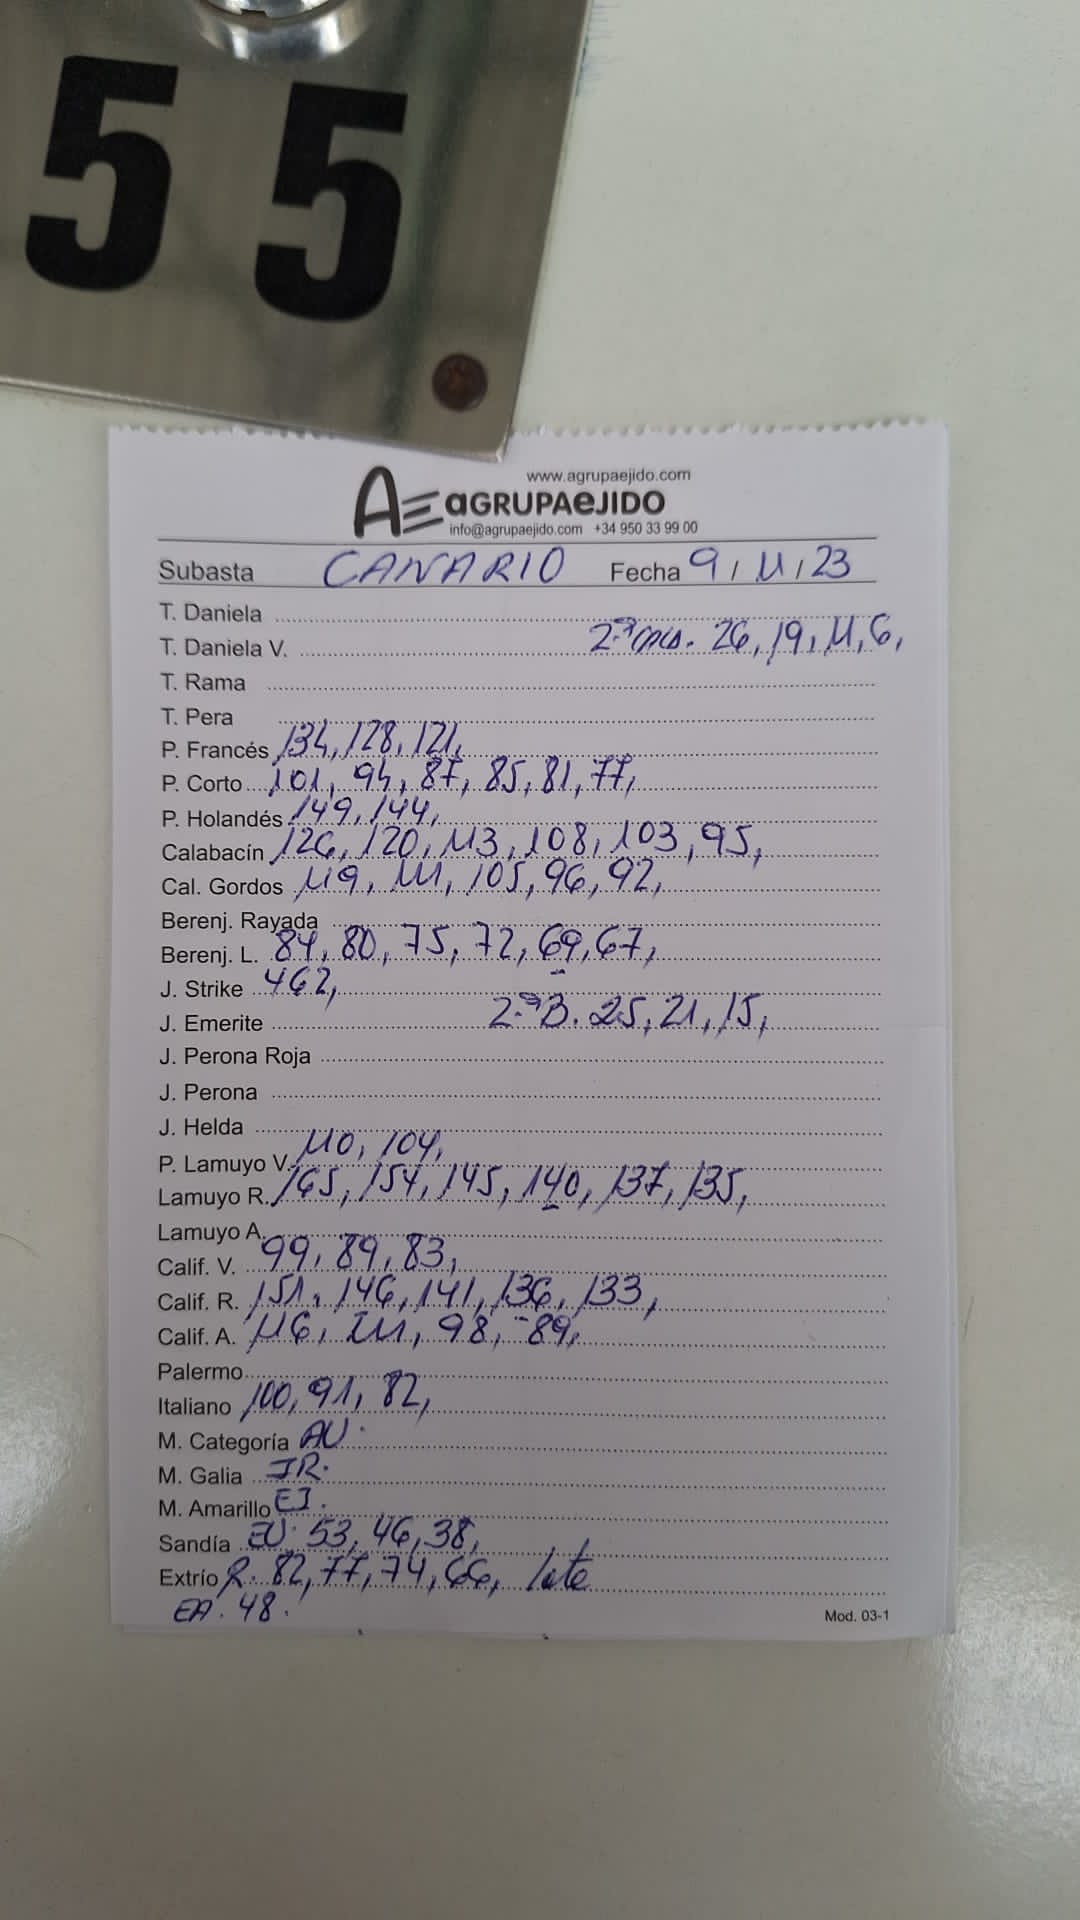 55
www.agrupaejido.com
AE aGRUPAeJIDO
info@agrupaejido.com +34 950 33 99 00
Subasta CANARIO Fecha 9/11/23
T. Daniela
T. Daniela V. 2ª CALD. 26, 19, 11, 6,
T. Rama
T. Pera
P. Francés 134, 128, 121,
P. Corto 101, 94, 87, 85, 81, 77,
P. Holandés 149, 144,
Calabacín 126, 120, 113, 108, 103, 95,
Cal. Gordos 119, 111, 105, 96, 92,
Berenj. Rayada
Berenj. L. 84, 80, 75, 72, 69, 67,
J. Strike 462,
J. Emerite 2ª B. 25, 21, 15,
J. Perona Roja
J. Perona
J. Helda
P. Lamuyo V. 110, 104,
Lamuyo R. 165, 154, 145, 140, 137, 135,
Lamuyo A.
Calif. V. 99, 89, 83,
Calif. R. 151, 146, 141, 136, 133,
Calif. A. 116, 111, 98, 89,
Palermo
Italiano 100, 91, 82,
M. Categoría AU.
M. Galia JR.
M. Amarillo EJ.
Sandía EU. 53, 46, 38,
Extrío R. 82, 77, 74, 66, lote
EA. 48.
Mod. 03-1